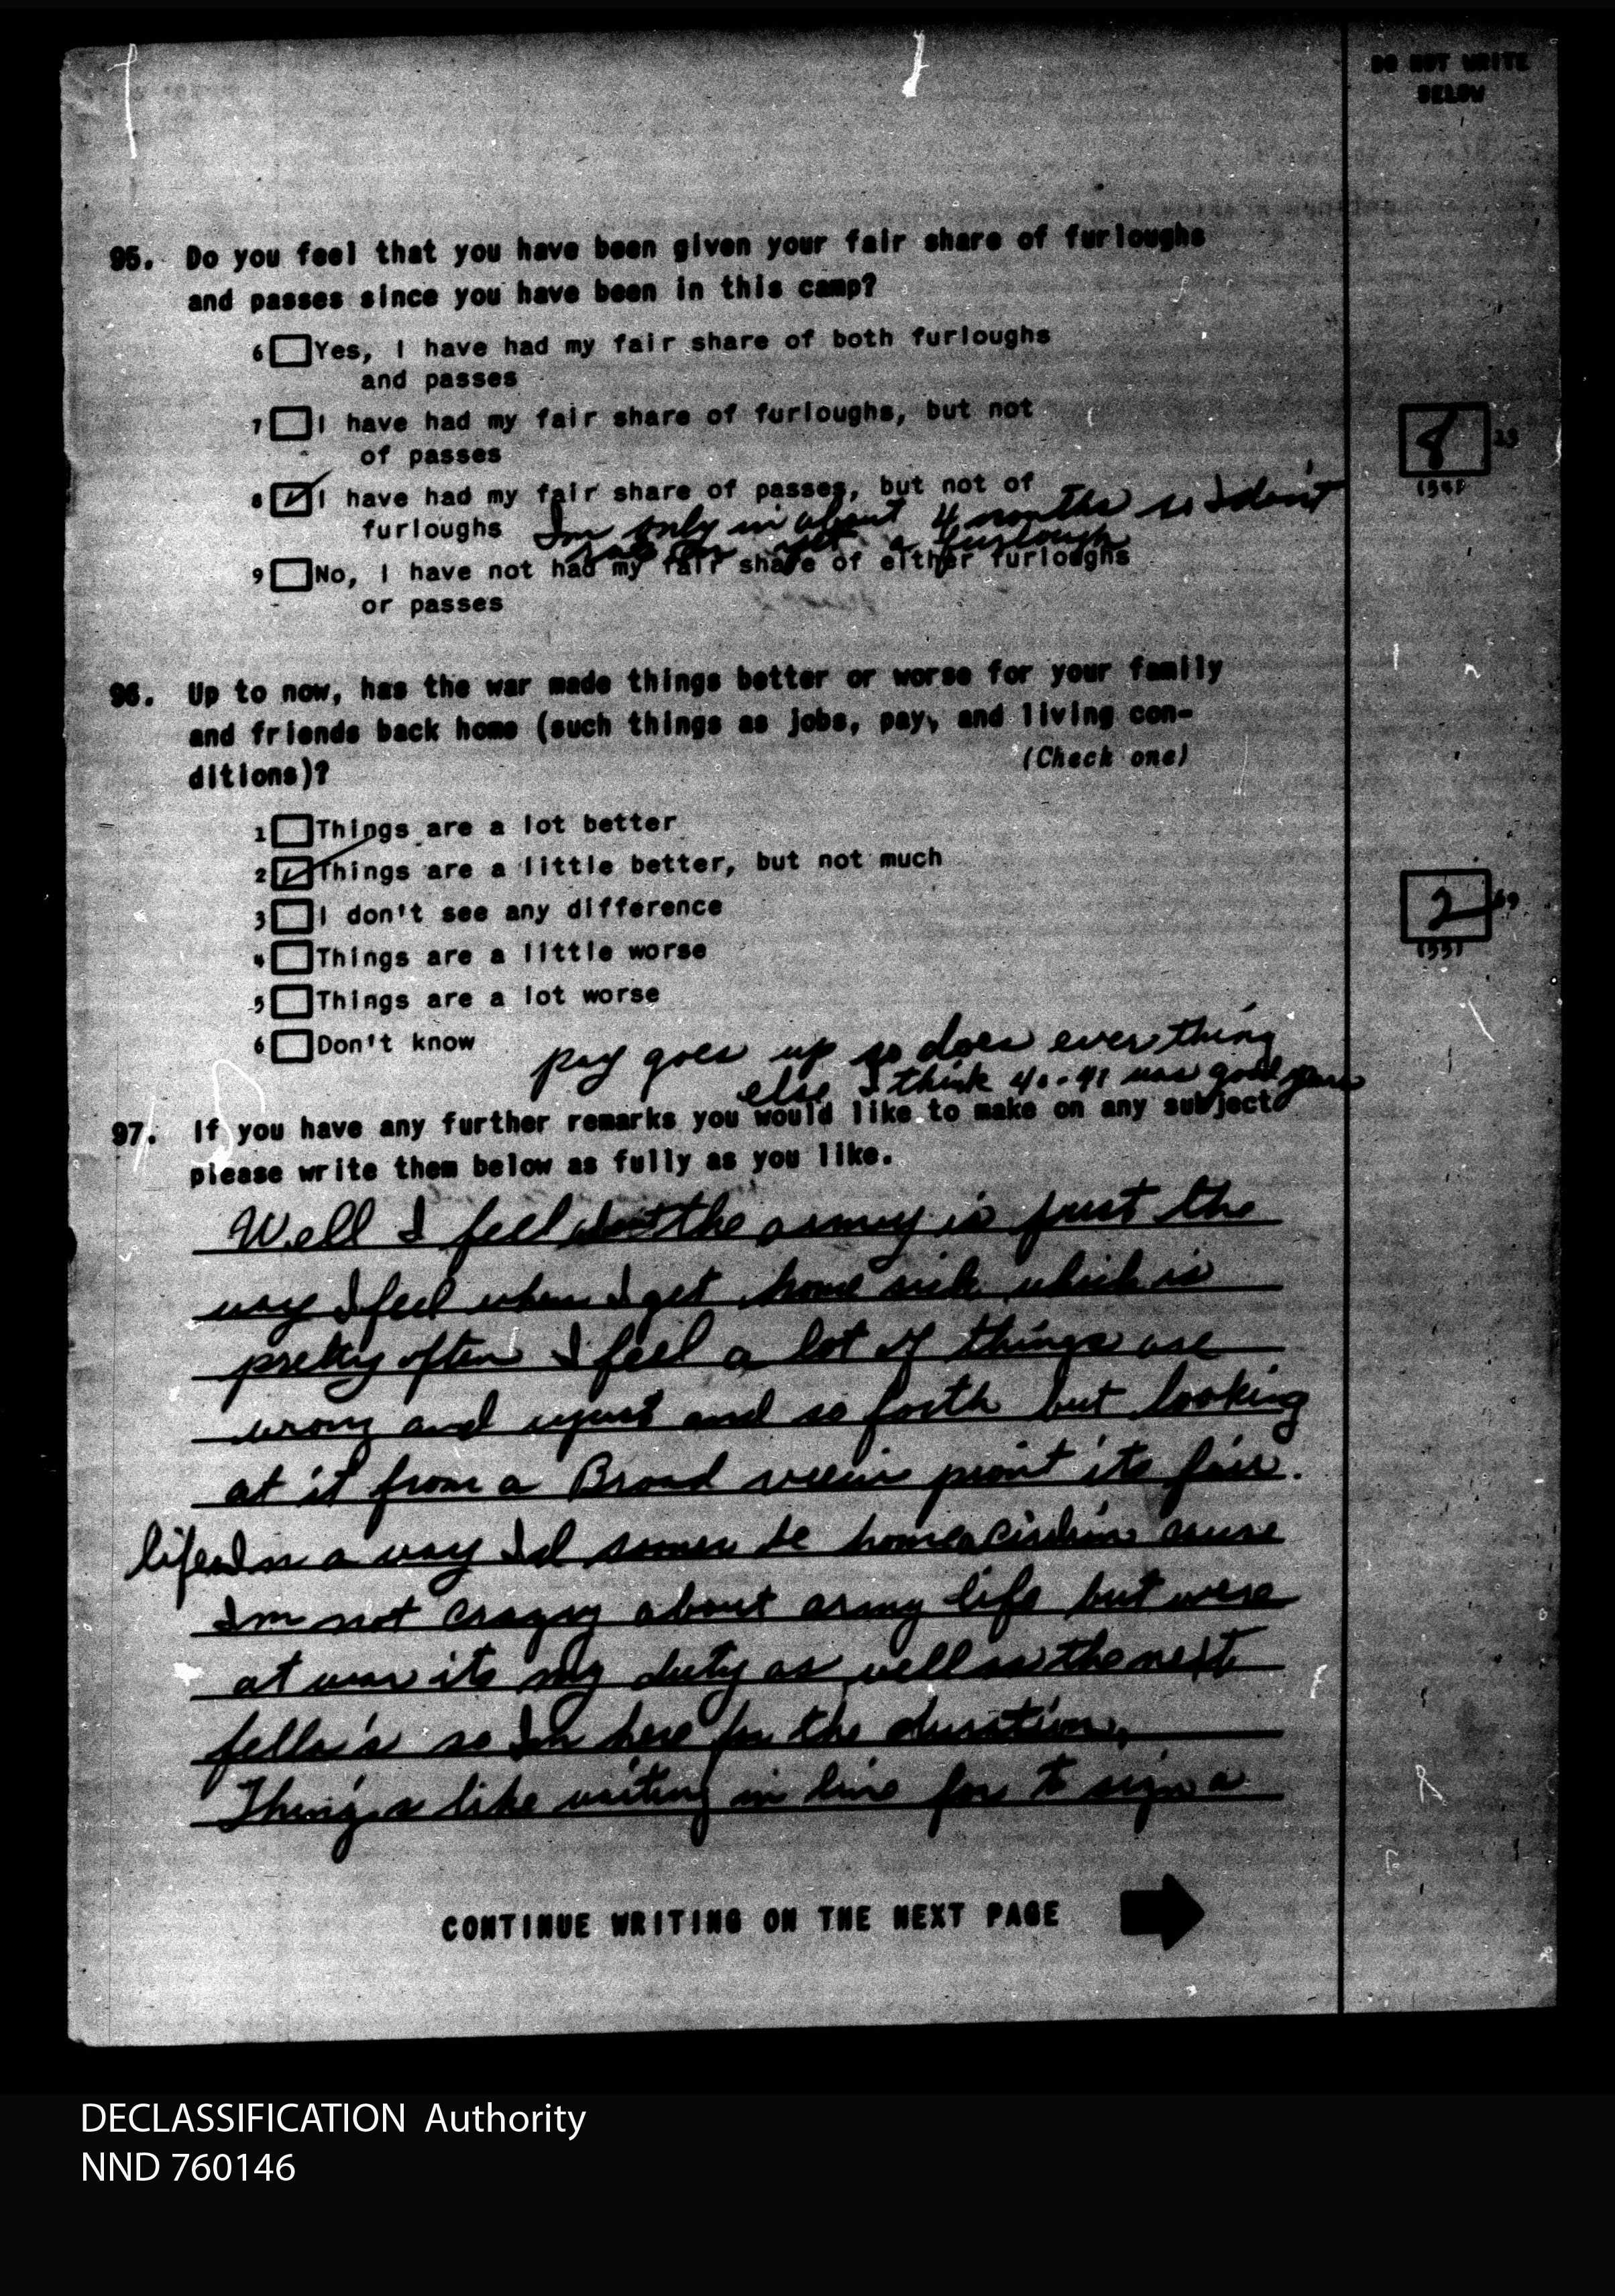 DO NOT WRITE
BELOW
95. Do you feel that you have been given your fair share of furloughs
and passes since you have been in this camp?
6 Yes, I have had my fair share of both furloughs
and passes
7 I have had my fair share of furloughs, but not
of passes
8 I have had my fair share of passes, but not of
furloughs Im only in about 4 months so I don't
rate yet a furlough
9 No, I have not had my fair share of either furloughs
or passes
8
(54)
96. Up to now, has the war made things better or worse for your family
and friends back home (such things as jobs, pay, and living con-
ditions)?
(Check one)
1 Things are a lot better
2 Things are a little better, but not much
3 I don't see any difference
4 Things are a little worse
5 Things are a lot worse
6 Don't know
2
(55)
pay goes up so does everthing
else I think 40-41 was good years
97. If you have any further remarks you would like to make on any subject
please write them below as fully as you like.
Well I feel about the army is just the
way I feel when I get home sick which is
pretty often I feel a lot of things are
wrong and ujust and so forth but looking
at it from a Broad veiw piont its fair.
life In a way Id be home cause
Im not crazy about army life but were
at war its my duty as well as the next
fella's so Im here for the duration.
Things like waiting in line for to sign a
CONTINUE WRITING ON THE NEXT PAGE
DECLASSIFICATION Authority
NND 760146